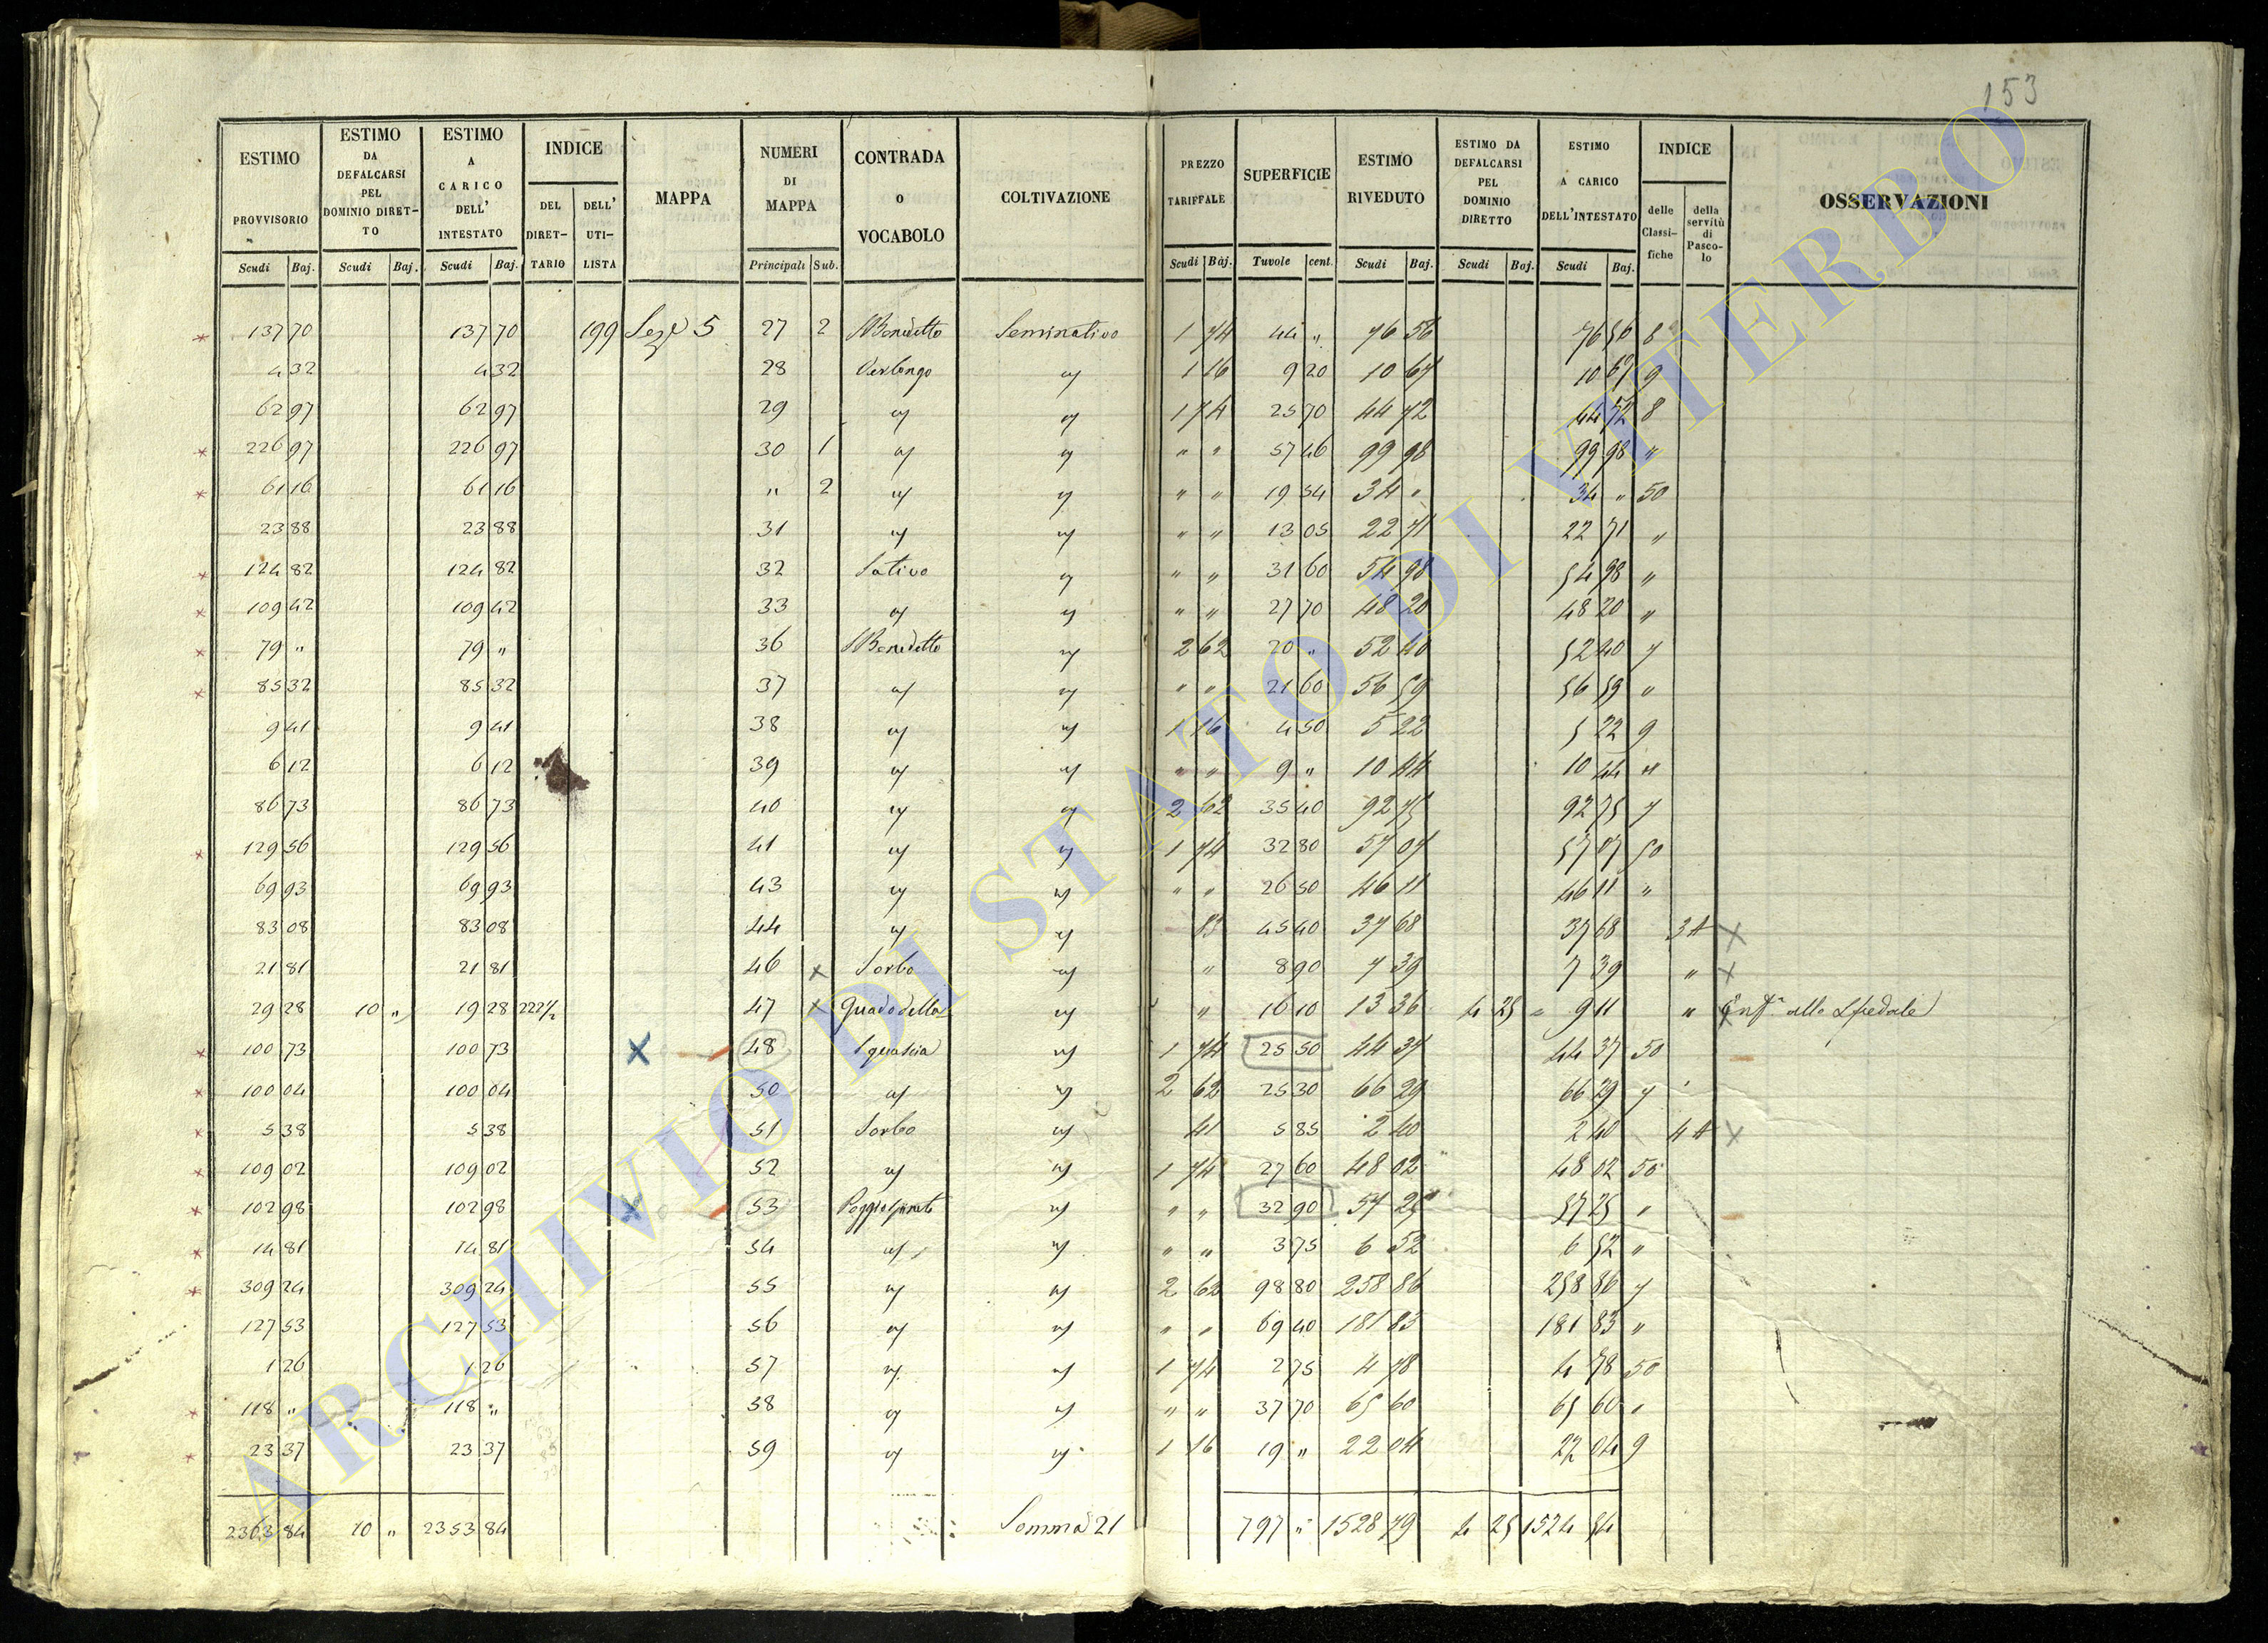 153
ESTIMO PROVVISORIO | ESTIMO DA DEFALCARSI PEL DOMINIO DIRETTO | ESTIMO A CARICO DELL' INTESTATO | INDICE | MAPPA | NUMERI DI MAPPA | CONTRADA o VOCABOLO | COLTIVAZIONE | PREZZO TARIFFALE | SUPERFICIE | ESTIMO RIVEDUTO | ESTIMO DA DEFALCARSI PEL DOMINIO DIRETTO | ESTIMO A CARICO DELL'INTESTATO | INDICE | OSSERVAZIONI
DEL DIRETTARIO | DELL' UTILISTA | delle Classifiche | della servitù di Pascolo
Scudi Baj. | Scudi Baj. | Scudi Baj. | Principali Sub. | Scudi Baj. | Tavole cent. | Scudi Baj. | Scudi Baj. | Scudi Baj.
137 70 | 137 70 | 199 | Sez.e 5 | 27 2 | S Benedetto | Seminativo | 1 74 | 44 " | 76 56 | 76 56 | 8
4 32 | 4 32 | 28 | " | 1 16 | 9 20 | 10 67 | 10 67 | 9
62 97 | 62 97 | 29 | " | " | 1 74 | 25 70 | 44 72 | 44 72 | 8
226 97 | 226 97 | 30 1 | " | " | " " | 57 46 | 99 98 | 99 98 | "
61 16 | 61 16 | " 2 | " | " | " " | 19 54 | 34 " | 34 " | 50
23 88 | 23 88 | 31 | " | " | " " | 13 05 | 22 71 | 22 71 | "
124 82 | 124 82 | 32 | Sativo | " | " " | 31 60 | 54 98 | 54 98 | "
109 42 | 109 42 | 33 | " | " | " " | 27 70 | 48 20 | 48 20 | "
79 " | 79 " | 36 | S Benedetto | " | 2 62 | 20 " | 52 40 | 52 40 | 7
85 32 | 85 32 | 37 | " | " | " " | 21 60 | 56 59 | 56 59 | "
9 41 | 9 41 | 38 | " | " | 1 16 | 4 50 | 5 22 | 5 22 | 9
6 12 | 6 12 | 39 | " | " | " " | 9 " | 10 44 | 10 44 | "
86 73 | 86 73 | 40 | " | " | 2 62 | 35 40 | 92 75 | 92 75 | 7
129 56 | 129 56 | 41 | " | " | 1 74 | 32 80 | 57 07 | 57 07 | 50
69 93 | 69 93 | 43 | " | " | " " | 26 50 | 46 11 | 46 11 | "
83 08 | 83 08 | 44 | " | " | 83 | 45 40 | 37 68 | 37 68 | 34 | x
21 81 | 21 81 | 46 x | Sorbo | " | " | 8 90 | 7 39 | 7 39 | " | x
29 28 | 10 " | 19 28 | 222½ | 47 x | Guado della | " | " | 16 10 | 13 36 | 4 25 | 9 11 | " | Enf.a allo Spedale
100 73 | 100 73 | x | 48 | Sguascia | " | 1 74 | 25 50 | 44 37 | 44 37 | 50
100 04 | 100 04 | 50 | " | " | 2 62 | 25 30 | 66 29 | 66 29 | 7
5 38 | 5 38 | 51 | Sorbo | " | 41 | 5 85 | 2 40 | 2 40 | 44 | x
109 02 | 109 02 | 52 | " | " | 1 74 | 27 60 | 48 02 | 48 02 | 50
102 98 | 102 98 | x | 53 | " | " " | 32 90 | 57 25 | 57 25 | "
14 81 | 14 81 | 54 | " | " | " " | 3 75 | 6 52 | 6 52 | "
309 24 | 309 24 | 55 | " | " | 2 62 | 98 80 | 258 86 | 258 86 | 7
127 53 | 127 53 | 56 | " | " | " " | 69 40 | 181 83 | 181 83 | "
1 26 | 1 26 | 57 | " | " | 1 74 | 2 75 | 4 78 | 4 78 | 50
118 " | 118 " | 58 | " | " | " " | 37 70 | 65 60 | 65 60 | "
23 37 | 23 37 | 59 | " | " | 1 16 | 19 " | 22 04 | 22 04 | 9
2363 84 | 10 " | 2353 84 | Somma 21 | 797 " | 1528 79 | 4 25 | 1524 54
ARCHIVIO DI STATO DI VITERBO